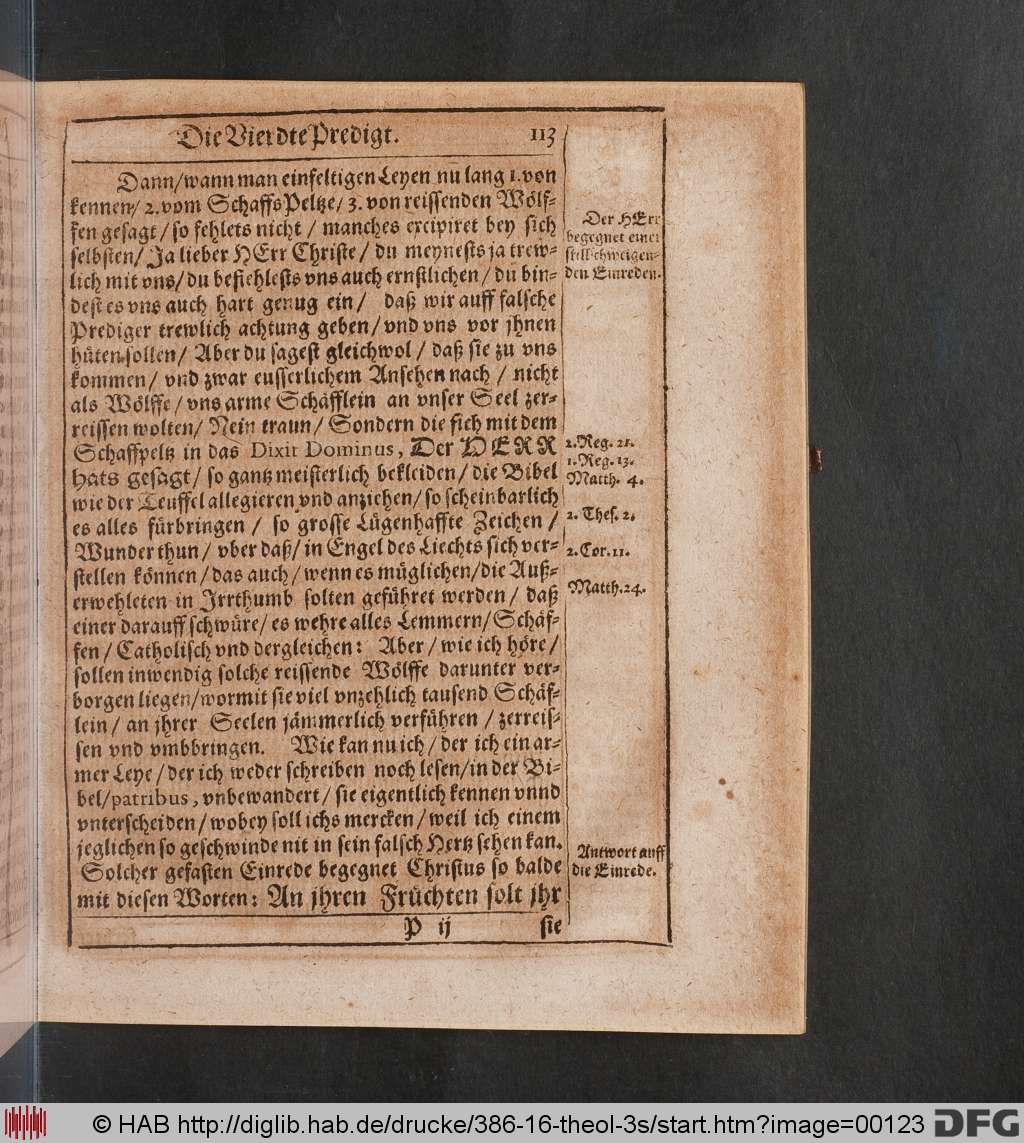 Die Vierdte Predigt. 113
Dann/wann man einfeltigen Leyen nu lang 1. von
kennen/ 2. vom SchaffsPeltze/ 3. von reissenden Wölf-
fen gesagt/ so fehlets nicht / manches excipiret bey sich
selbsten/ Ja lieber HErr Christe/ du meynests ja trew-
lich mit vns/ du befiehlests vns auch ernstlichen/ du bin-
dest es vns auch hart genug ein/ daß wir auff falsche
Prediger trewlich achtung geben/ vnd vns vor jhnen
hüten sollen/ Aber du sagest gleichwol/ daß sie zu vns
kommen/ vnd zwar eusserlichem Ansehen nach/ nicht
als Wölffe/ vns arme Schäfflein an vnser Seel zer-
reissen wolten/ Nein traun/ Sondern die sich mit dem
Schaffpeltz in das Dixit Dominus, Der HERR
hats gesagt/ so gantz meisterlich bekleiden/ die Bibel
wie der Teuffel allegieren vnd anziehen/ so scheinbarlich
es alles fürbringen / so grosse Lügenhaffte Zeichen /
Wunder thun/ vber daß/ in Engel des Liechts sich ver-
stellen können/ das auch/ wenn es müglichen/die Auß-
erwehleten in Irrthumb solten geführet werden/ daß
einer darauff schwüre/ es wehre alles Lemmern/ Schäf-
fen/ Catholisch vnd dergleichen: Aber/ wie ich höre/
sollen inwendig solche reissende Wölffe darunter ver-
borgen liegen/wormit sie viel vnzehlich tausend Schäf-
lein/ an jhrer Seelen jämmerlich verführen / zerreis-
sen vnd vmbbringen. Wie kan nu ich/ der ich ein ar-
mer Leye/ der ich weder schreiben noch lesen/in der Bi-
bel/patribus, vnbewandert/ sie eigentlich kennen vnnd
vnterscheiden/ wobey soll ichs mercken/ weil ich einem
jeglichen so geschwinde nit in sein falsch Hertz sehen kan.
Solcher gefasten Einrede begegnet Christus so balde
mit diesen Worten: An jhren Früchten solt jhr
P ij sie
Der HErr
begegnet einer
stillschweigen-
den Einreden.
2. Reg. 21.
1. Reg. 13.
Matth. 4.
2. Thes. 2.
2. Cor. 11.
Matth. 24.
Antwort auff
die Einrede.
© HAB http://diglib.hab.de/drucke/386-16-theol-3s/start.htm?image=00123 DFG